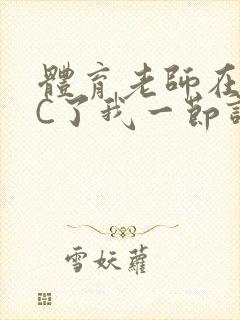 體育老師在
C了我一節
雪妖蘿